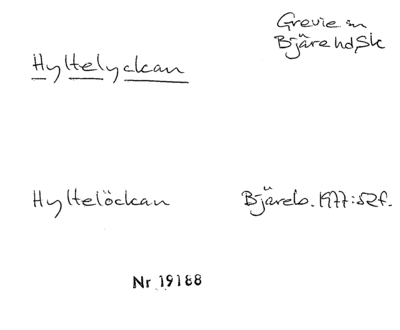 Grevie sn
Bjäre hd, Sk
Hyltelyckan
Hyltelöckan Bjäreb. 1977:52f.
Nr 19188